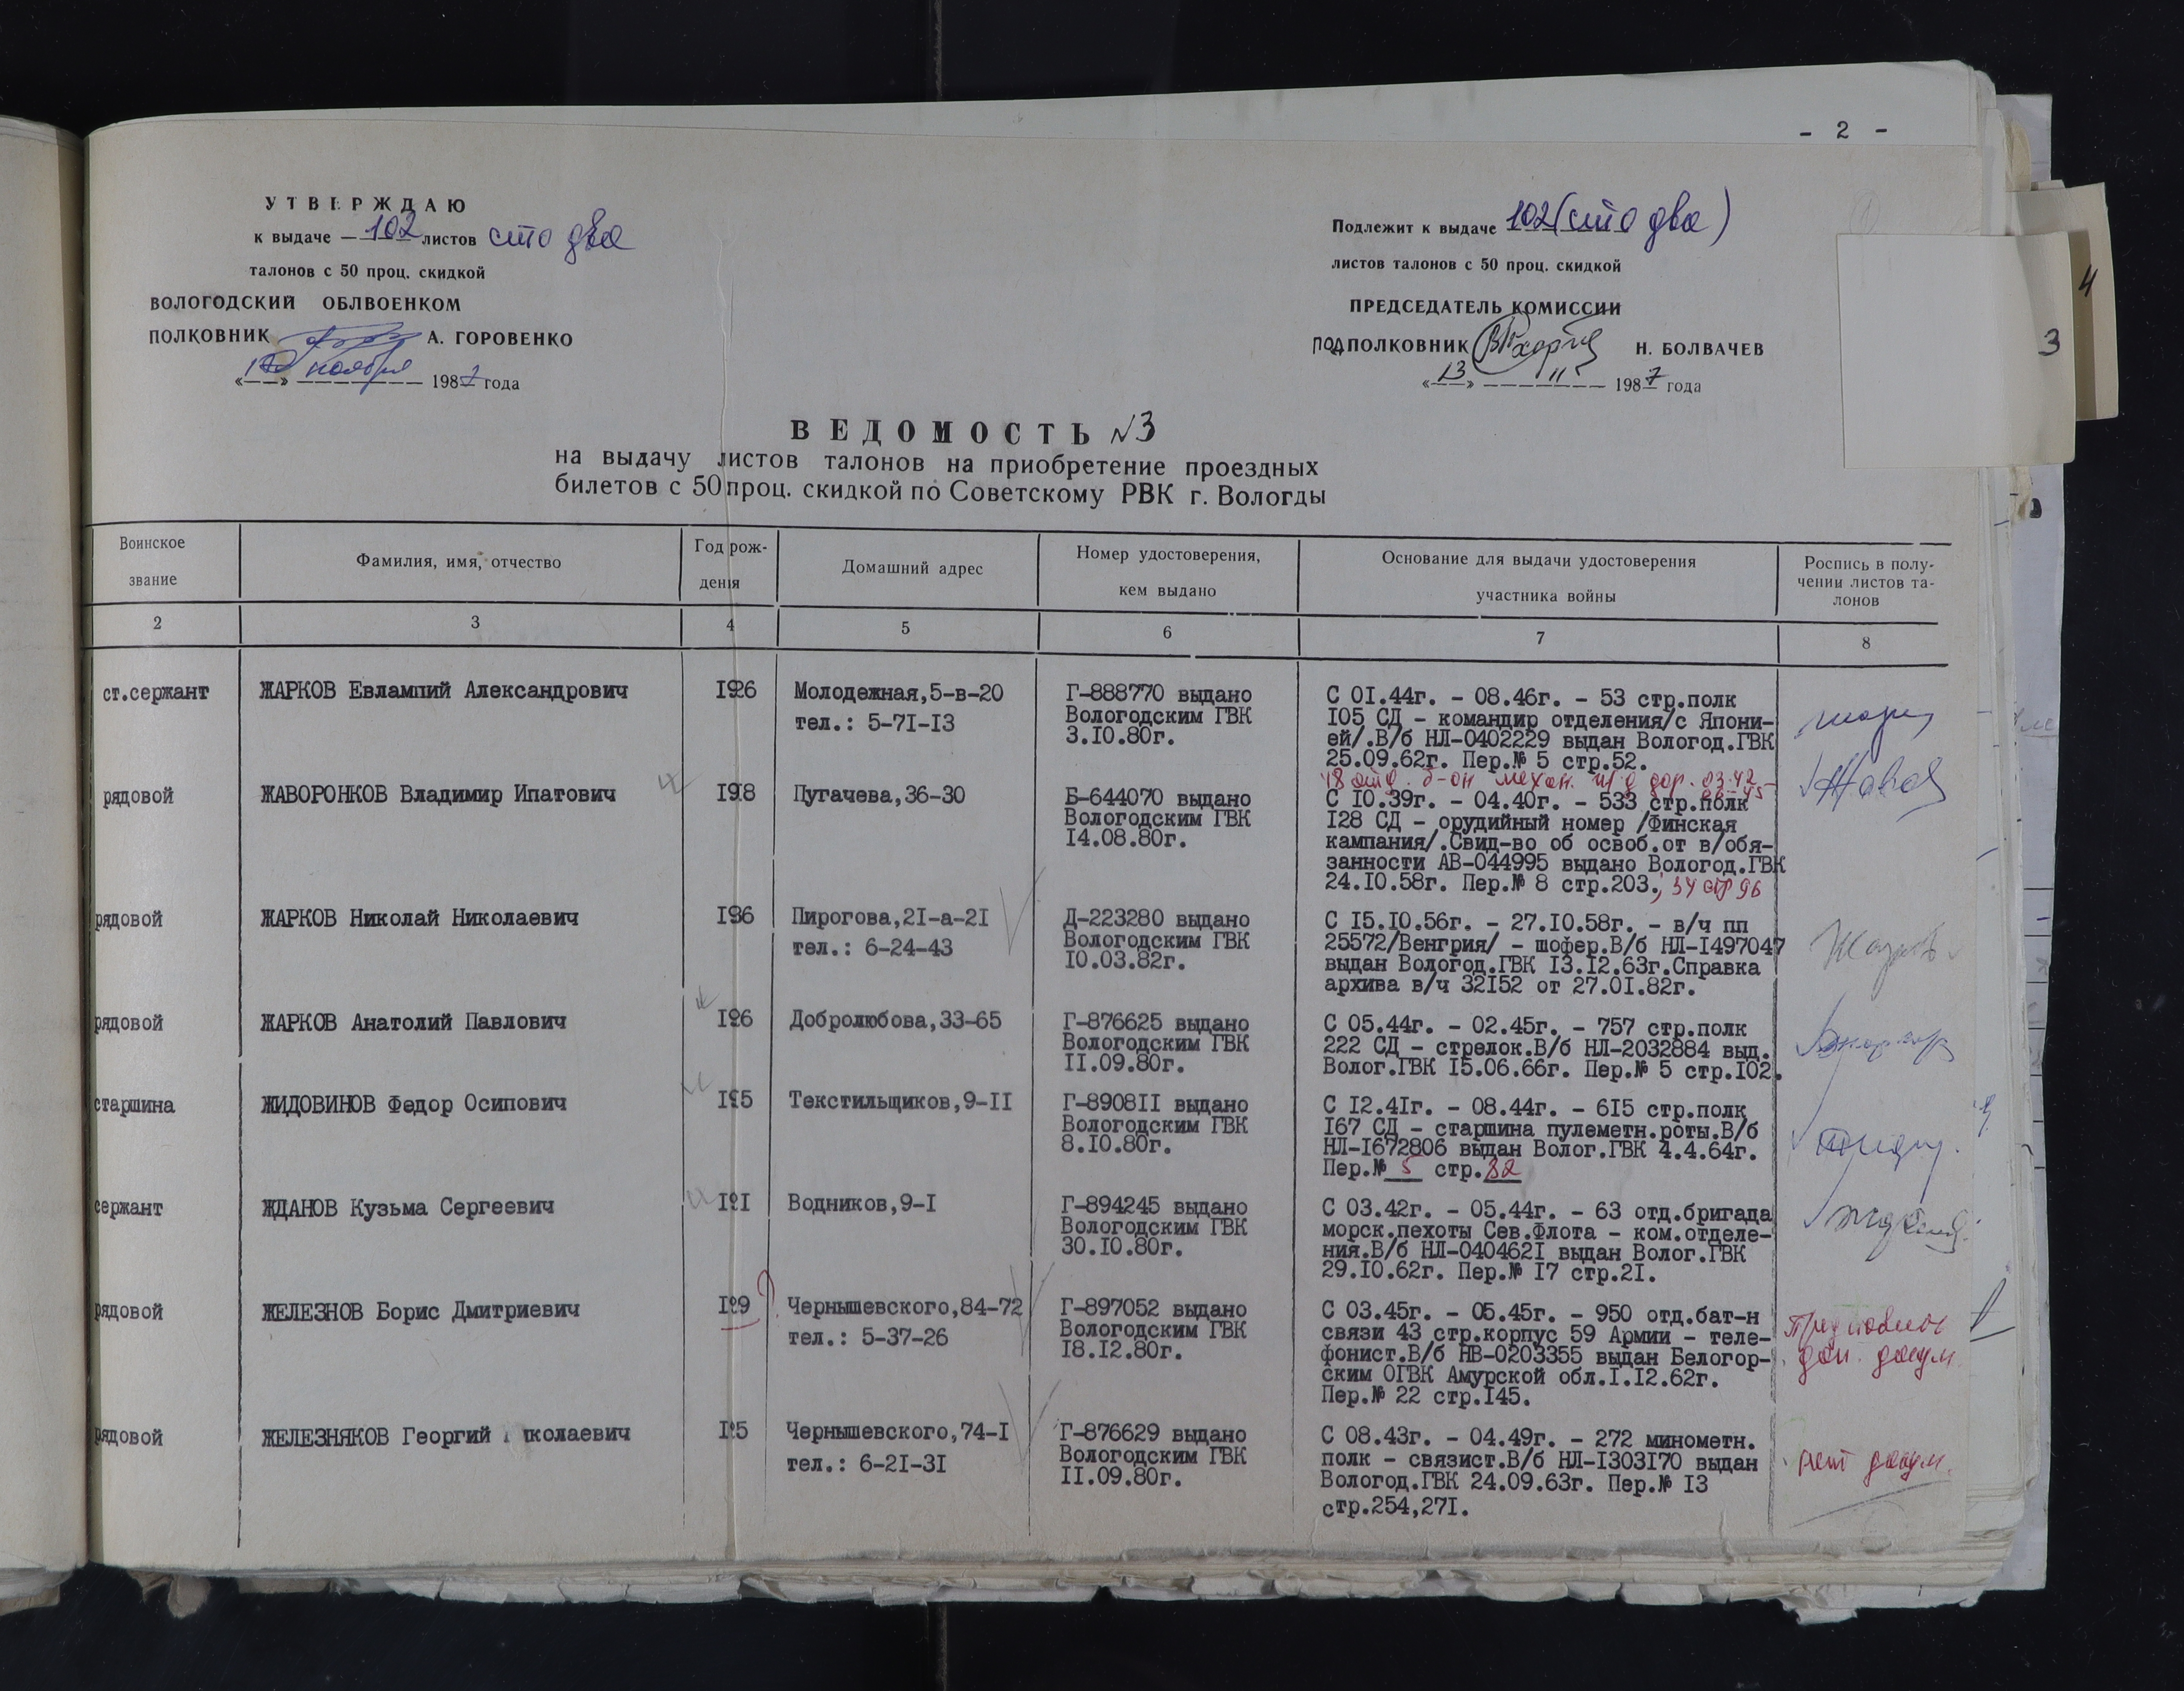 - 2 -
УТВЕРЖДАЮ
к выдаче — 102 листов сто два
талонов с 50 проц. скидкой
ВОЛОГОДСКИЙ ОБЛВОЕНКОМ
ПОЛКОВНИК А. ГОРОВЕНКО
ноября 1987 года
Подлежит к выдаче 102 (сто два)
листов талонов с 50 проц. скидкой
ПРЕДСЕДАТЕЛЬ КОМИССИИ
ПОДПОЛКОВНИК Н. БОЛВАЧЕВ
«13» 11 1987 года
4
3
ВЕДОМОСТЬ №3
на выдачу листов талонов на приобретение проездных
билетов с 50 проц. скидкой по Советскому РВК г. Вологды
Воинское
звание
Фамилия, имя, отчество
Год рож-
дения
Домашний адрес
Номер удостоверения,
кем выдано
Основание для выдачи удостоверения
участника войны
Роспись в полу-
чении листов та-
лонов
2 3 4 5 6 7 8
ст.сержант
ЖАРКОВ Евлампий Александрович
1926
Молодежная,5-в-20
тел.: 5-71-13
Г-888770 выдано
Вологодским ГВК
3.10.80г.
С 01.44г. - 08.46г. - 53 стр.полк
105 СД - командир отделения/с Япони-
ей/.В/б НЛ-0402229 выдан Вологод.ГВК
25.09.62г. Пер.№ 5 стр.52.
рядовой
ЖАВОРОНКОВ Владимир Ипатович
Пугачева,36-30
Б-644070 выдано
Вологодским ГВК
14.08.80г.
С 10.39г. - 04.40г. - 533 стр.полк
128 СД - орудийный номер /Финская
кампания/.Свид-во об освоб.от в/обя-
занности АВ-044995 выдано Вологод.ГВК
24.10.58г. Пер.№ 8 стр.203.; 34 стр 96
рядовой
ЖАРКОВ Николай Николаевич
Пирогова,21-а-21
тел.: 6-24-43
Д-223280 выдано
Вологодским ГВК
10.03.82г.
С 15.10.56г. - 27.10.58г. - в/ч пп
25572/Венгрия/ - шофер.В/б НЛ-1497047
выдан Вологод.ГВК 13.12.63г.Справка
архива в/ч 32152 от 27.01.82г.
рядовой
ЖАРКОВ Анатолий Павлович
Добролюбова,33-65
Г-876625 выдано
Вологодским ГВК
11.09.80г.
С 05.44г. - 02.45г. - 757 стр.полк
222 СД - стрелок.В/б НЛ-2032884 выд.
Волог.ГВК 15.06.66г. Пер.№ 5 стр.102.
старшина
ЖИДОВИНОВ Федор Осипович
Текстильщиков,9-11
Г-890811 выдано
Вологодским ГВК
8.10.80г.
С 12.41г. - 08.44г. - 615 стр.полк
167 СД - старшина пулеметн.роты.В/б
НЛ-1672806 выдан Волог.ГВК 4.4.64г.
Пер.№ 5 стр.32
сержант
ЖДАНОВ Кузьма Сергеевич
Водников,9-1
Г-894245 выдано
Вологодским ГВК
30.10.80г.
С 03.42г. - 05.44г. - 63 отд.бригада
морск.пехоты Сев.Флота - ком.отделе-
ния.В/б НЛ-0404621 выдан Волог.ГВК
29.10.62г. Пер.№ 17 стр.21.
рядовой
ЖЕЛЕЗНОВ Борис Дмитриевич
Чернышевского,84-72
тел.: 5-37-26
Г-897052 выдано
Вологодским ГВК
18.12.80г.
С 03.45г. - 05.45г. - 950 отд.бат-н
связи 43 стр.корпус 59 Армии - теле-
фонист.В/б НВ-0203355 выдан Белогор-
ским ОГВК Амурской обл.1.12.62г.
Пер.№ 22 стр.145.
доп. докум.
рядовой
ЖЕЛЕЗНЯКОВ Георгий Николаевич
Чернышевского,74-1
тел.: 6-21-31
Г-876629 выдано
Вологодским ГВК
11.09.80г.
С 08.43г. - 04.49г. - 272 минометн.
полк - связист.В/б НЛ-1303170 выдан
Вологод.ГВК 24.09.63г. Пер.№ 13
стр.254,271.
нет докум.